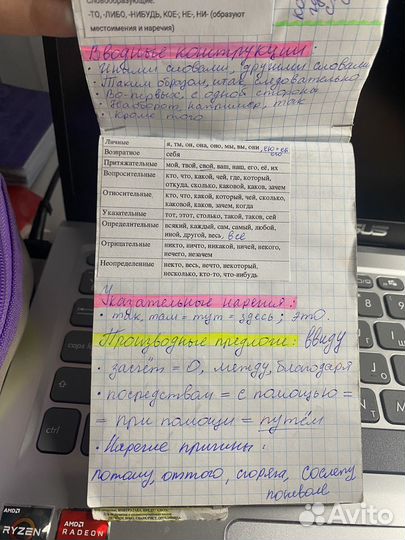 Словообразующие:
-ТО, -ЛИБО, -НИБУДЬ, КОЕ-; НЕ-, НИ- (образуют
местоимения и наречия)
Вводные конструкции:
• Иными словами, другими словами
• Таким образом, итак, следовательно
• Во-первых, с одной стороны
• Наоборот, например, так
• Кроме того
Личные я, ты, он, она, оно, мы, вы, они
Возвратное себя
Притяжательные мой, твой, свой, ваш, наш, его, её, их
Вопросительные кто, что, какой, чей, где, который,
откуда, сколько, каковой, каков, зачем
Относительные кто, что, какой, который, чей, сколько,
каковой, каков, зачем, когда
Указательные тот, этот, столько, такой, таков, сей
Определительные всякий, каждый, сам, самый, любой,
иной, другой, весь, всё
Отрицательные никто, ничто, никакой, ничей, некого,
нечего, незачем
Неопределенные некто, весь, нечто, некоторый,
несколько, кто-то, что-нибудь
Указательное наречия:
• так, там = тут = здесь; это.
Производные предлоги: ввиду
• зачёт = О, между, благодаря
• посредством = с помощью =
= при помощи = путём
• Наречие причины:
потому, оттого, сгоряча, сослепу
поневоле
AMD
RYZEN
AMD
RADEON
Avito